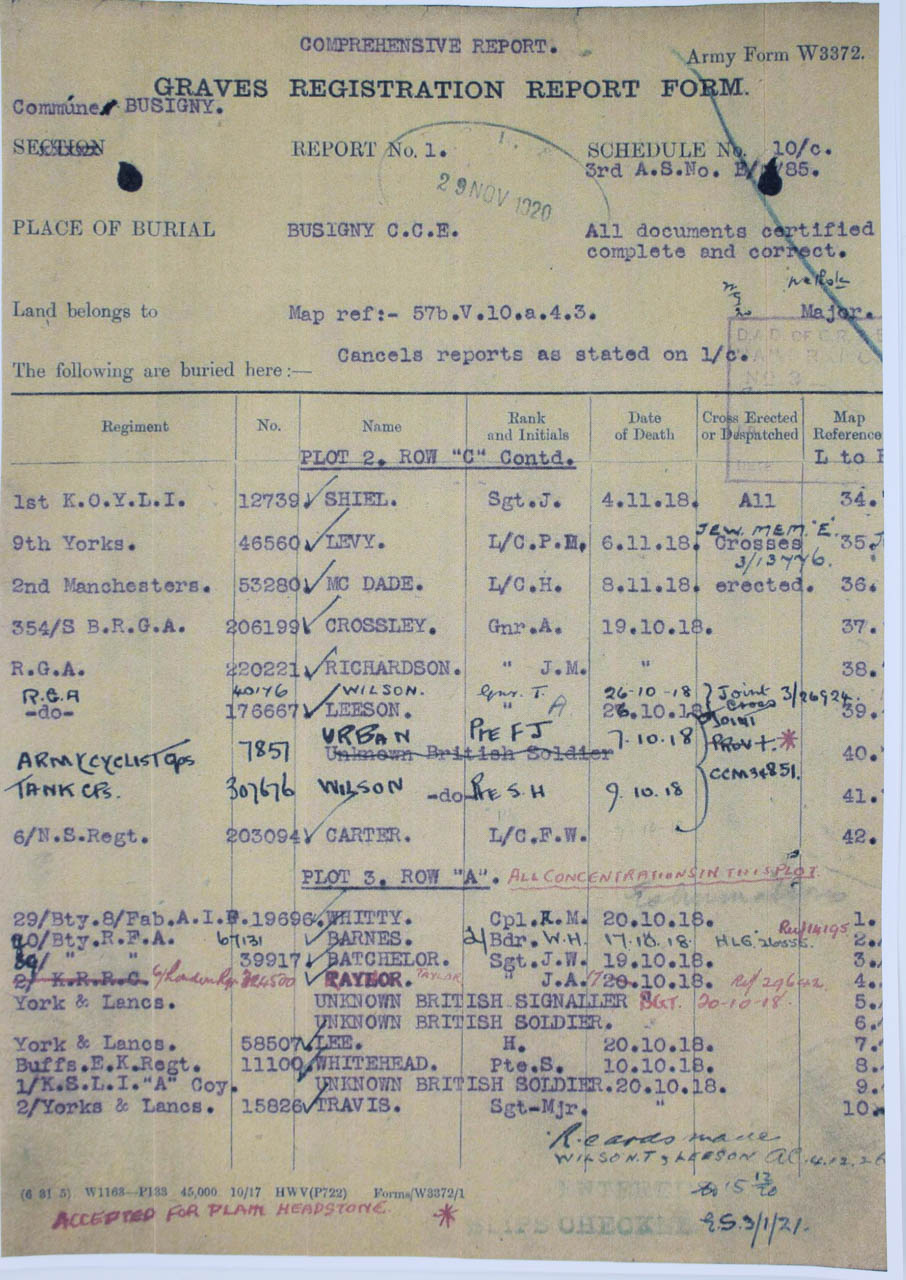 COMPREHENSIVE REPORT.
Army Form W3372.
GRAVES REGISTRATION REPORT FORM.
Commune BUSIGNY.
SECTION REPORT No. 1. SCHEDULE No. 10/c.
3rd A.S.No. /85.
29 NOV 1920
PLACE OF BURIAL BUSIGNY C.C.E. All documents certified
complete and correct.
Land belongs to Map ref:- 57b.V.10.a.4.3. Major.
Cancels reports as stated on 1/c.
The following are buried here:—
D.A.D. OF G.R.
NO 3
Regiment No. Name Rank and Initials Date of Death Cross Erected or Despatched Map Reference
PLOT 2. ROW "C" Contd. L to
1st K.O.Y.L.I. 12739 SHIEL. Sgt.J. 4.11.18. All 34.
JEW. MEM "E".
9th Yorks. 46560 LEVY. L/C.P. 6.11.18. Crosses 35.
3/13776.
2nd Manchesters. 53280 MC DADE. L/C.H. 8.11.18. erected. 36.
354/S B.R.G.A. 206199 CROSSLEY. Gnr.A. 19.10.18. 37.
R.G.A. 220221 RICHARDSON. " J.M. " 38.
R.G.A 40176 WILSON. Gnr. T. 26-10-18 Joint 3/26924.
Cross
-do- 176667 LEESON. " A 26.10.18 39.
JOINT
URBAN Pte F J 7.10.18
ARMY CYCLIST Cps 7857 Unknown British Soldier PROV + * 40.
CCM34851.
TANK CPS. 307676 WILSON -do- Pte S.H 9.10.18 41.
6/N.S.Regt. 203094 CARTER. L/C.F.W. 42.
PLOT 3. ROW "A". ALL CONCENTRATIONS IN THIS PLOT.
29/Bty.8/Fab.A.I.F. 19696. WHITTY. Cpl.R.M. 20.10.18. 1.
/Bty.R.F.A. 67131 BARNES. 2/Bdr. W.H. 17.10.18. 2.
/ " " 39917 BATCHELOR. Sgt.J.W. 19.10.18. 3.
2/ K.R.R.C. TAYLOR. TAYLOR " J.A. 20.10.18. 4.
York & Lancs. UNKNOWN BRITISH SIGNALLER SGT. 20-10-18. 5.
UNKNOWN BRITISH SOLDIER. 6.
York & Lancs. 58507 LEE. H. 20.10.18. 7.
Buffs.E.K.Regt. 11100 WHITEHEAD. Pte.S. 10.10.18. 8.
1/K.S.L.I."A" Coy. UNKNOWN BRITISH SOLDIER. 20.10.18. 9.
2/Yorks & Lancs. 15826 TRAVIS. Sgt-Mjr. " 10.
R. cards made
WILSON.T & LEESON
(6 31 5) W1163—P133 45,000 10/17 HWV(P722) Forms/W3372/1
ACCEPTED FOR PLAIN HEADSTONE. *
SLIPS CHECKE
E.S.3/1/21.